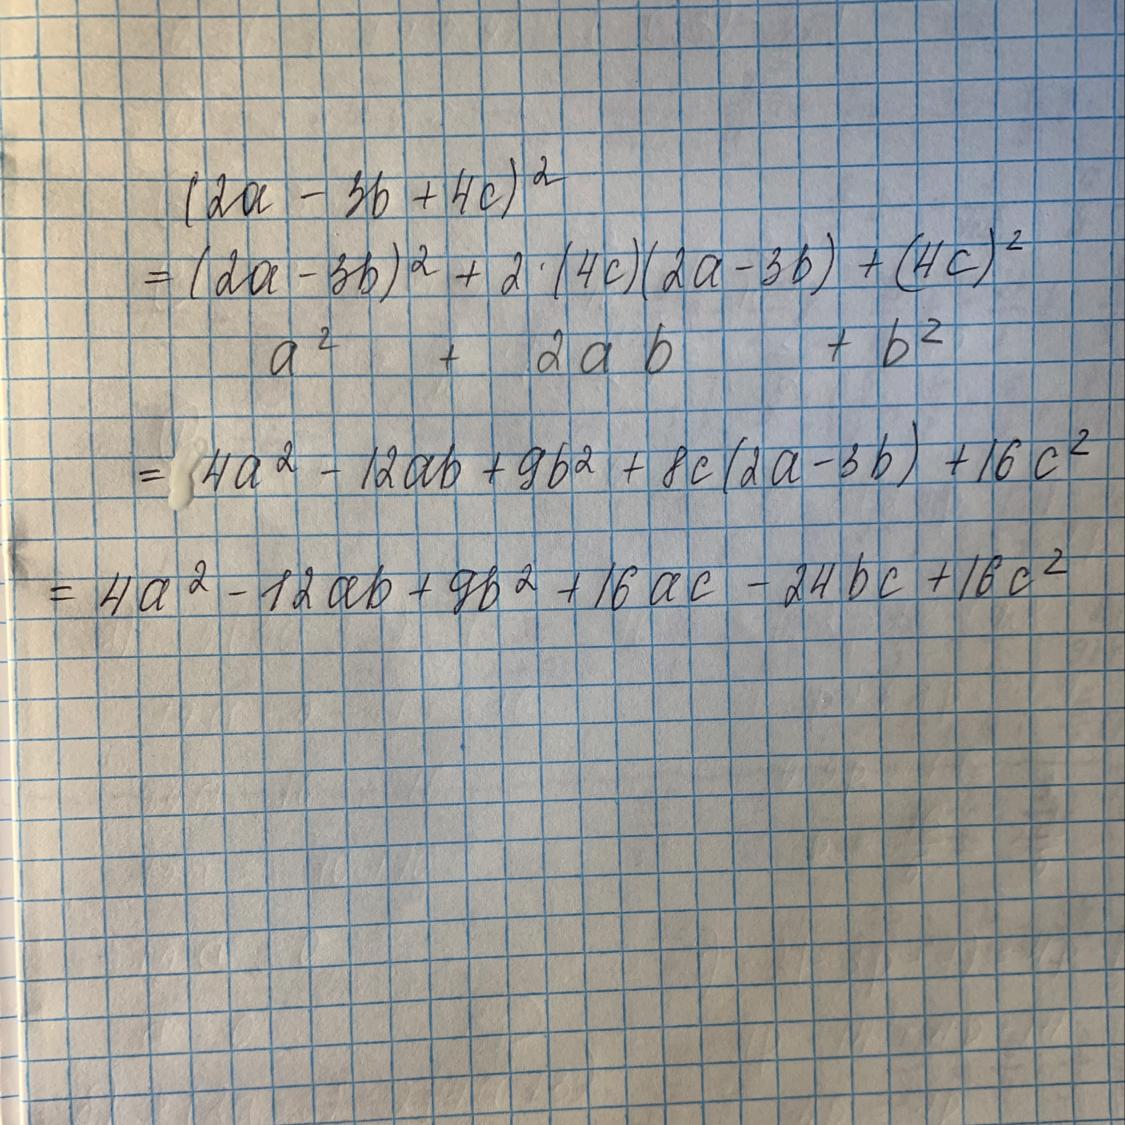 (2a - 3b + 4c)²
= (2a - 3b)² + 2·(4c)(2a - 3b) + (4c)²
a² + 2ab + b²
= 4a² - 12ab + 9b² + 8c(2a - 3b) + 16c²
= 4a² - 12ab + 9b² + 16ac - 24bc + 16c²